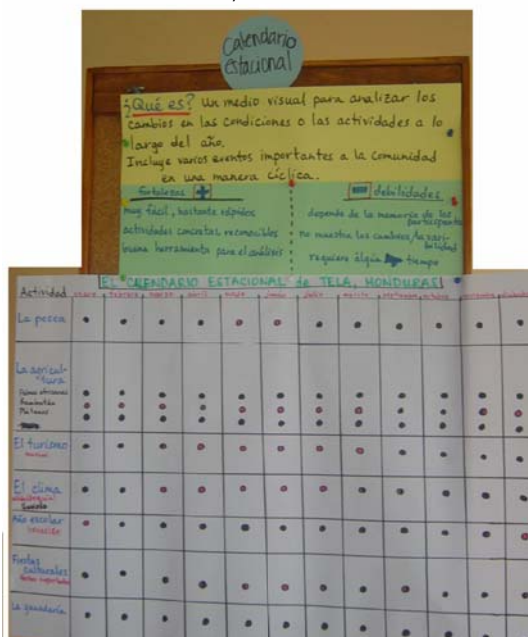 Calendario
estacional
¿Qué es? Un medio visual para analizar los
cambios en las condiciones o las actividades a lo
largo del año.
Incluye varios eventos importantes a la comunidad
en una manera cíclica.
fortalezas +
muy fácil, bastante rápidos
actividades concretas, reconocibles
buena herramienta para el análisis
- debilidades
depende de la memoria de los
participantes
no muestra los cambios/la vari-
bilidad
requiere algún tiempo
EL CALENDARIO ESTACIONAL de TELA, HONDURAS
Actividad enero febrero marzo abril mayo junio julio agosto septiembre octubre noviembre diciembre
La pesca
La agricul-
tura
Palma africana
Rambután
Plátanos
El turismo
El clima
Año escolar
vacación
Fiestas
culturales
La ganadería